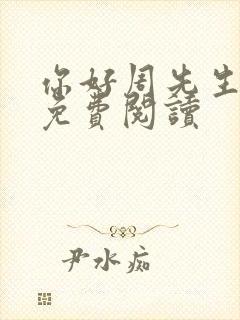 你好周先生
免費閱讀
尹水痴